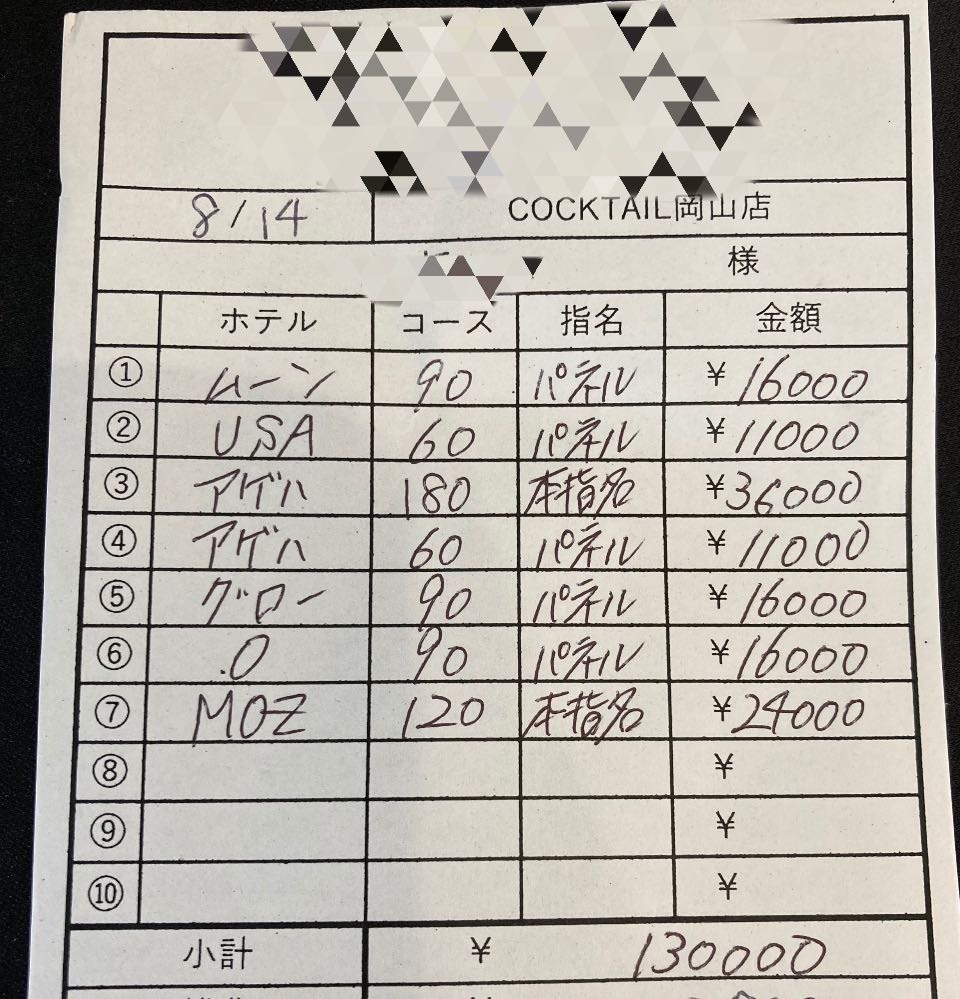 8/14 COCKTAIL岡山店
様
ホテル コース 指名 金額
① ムーン 90 パネル ¥16000
② USA 60 パネル ¥11000
③ アゲハ 180 本指名 ¥36000
④ アゲハ 60 パネル ¥11000
⑤ グロー 90 パネル ¥16000
⑥ .O 90 パネル ¥16000
⑦ MOZ 120 本指名 ¥24000
⑧ ¥
⑨ ¥
⑩ ¥
小計 ¥ 130000